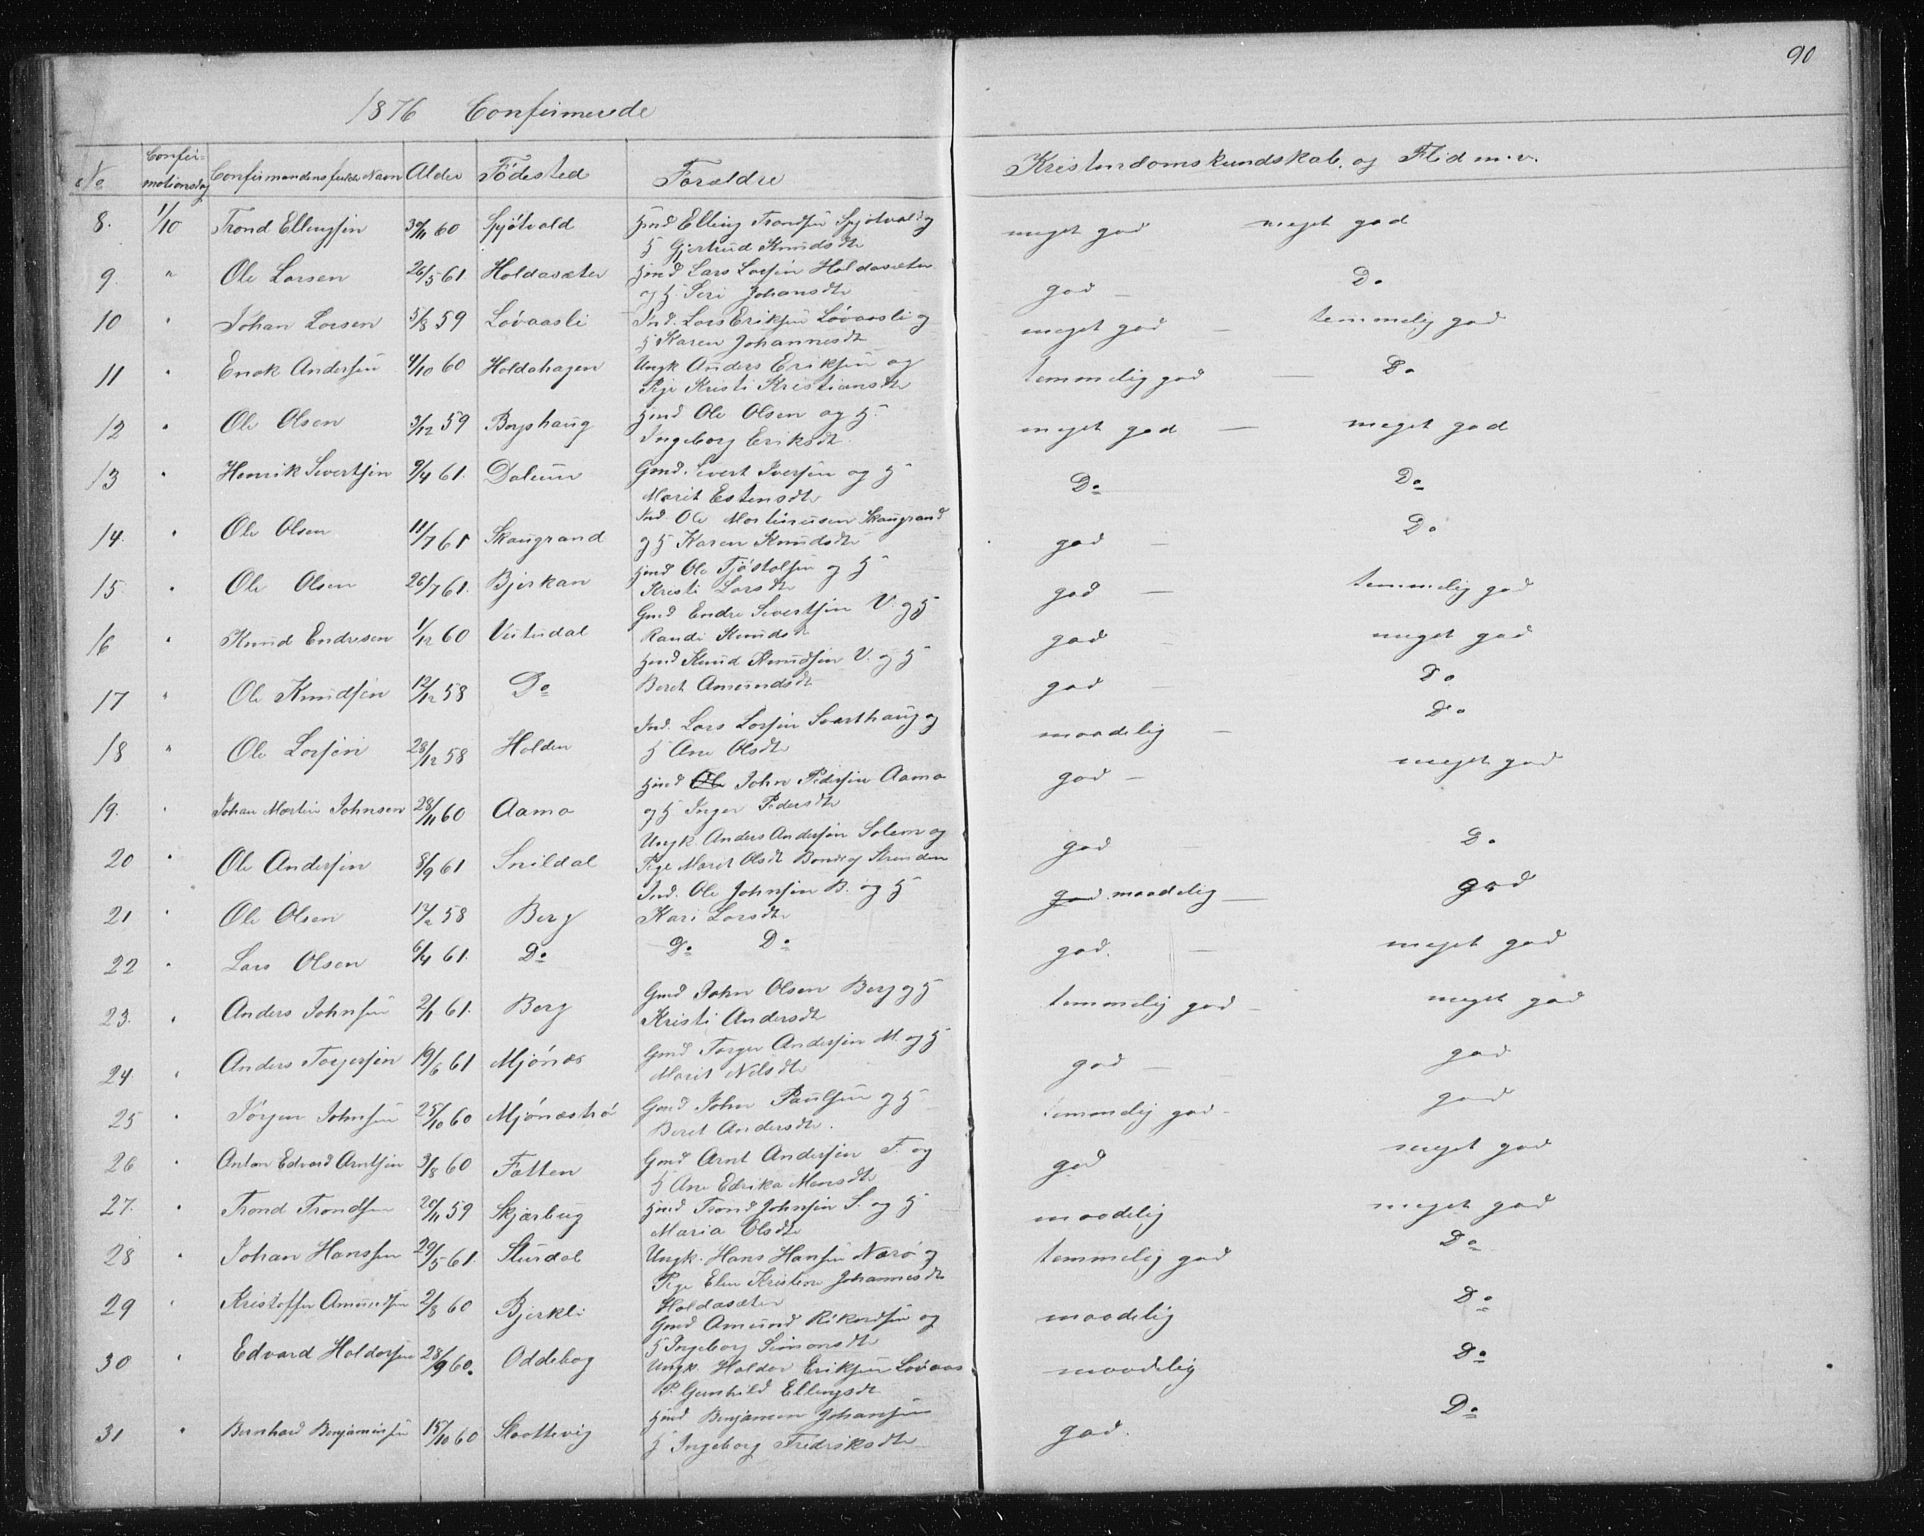 90
1876 Confirmerede
No Confirmationsdag Confirmandens fulde Navn Alder Födested Forældre Kristendomskundskab og Flid m.v.
8. 1/10 Trond Ellingsen 30/11 60 Spjötvold Hmd Elling Trondsen Spjötvold og meget god meget god
H Gjertrud Knudsdtr
9. " Ole Larsen 26/5 61. Holdasæter Hmd Lars Larsen Holdasæter god — Do
og H. Seri Johansdtr
10 " Johan Larsen 5/8 59 Lövaasli Ind. Lars Eriksen Lövaasli og meget god — temmelig god
H Karen Johannesdtr
11 " Enok Andersen 4/10 60 Holdahagen Ungk Anders Eriksen og temmelig god — Do
Pige Kristi Kristiansdtr
12 " Ole Olsen 3/12 59 Berghaug Hmd Ole Olsen og H. meget god — meget god
Ingeborg Eriksdtr
13 " Henrik Sivertsen 9/4 61. Dalum Gmd. Sivert Iversen og H Do Do
Marit Estensdtr
14. " Ole Olsen 11/7 61 Skaugrand Ind Ole Martinusen Skaugrand god — Do
og H Karen Knudsdtr
15. " Ole Olsen 26/7 61. Bjerkan Hmd Ole Tjöstolsen og H god — temmelig god
Kristi Larsdtr
16 " Knud Endresen 1/12 60 Vutudal Gmd Endre Sivertsen V. og H god — meget god
Randi Knudsdtr
17 " Ole Knudsen 12/12 58 Do Hmd Knud Knudsen V. og H god — Do
Beret Amundsdtr
18 " Ole Larsen 28/12 58 Holden Ind. Lars Larsen Svarthaug og maadelig — Do
H Ane Olsdtr
19. " Johan Martin Johnsen 28/11 60 Aamo Hmd Ole John Pedersen Aamo god — meget god
og H Inger Pedersdtr
20 " Ole Andersen 8/9 61 Snildal Ungk. Anders Andersen Solem og god — Do
Pige Marit Olsdtr
21 " Ole Olsen 12/2 58 Berg Ind. Ole Johnsen B. og H god maadelig — god
Kari Larsdtr
22 " Lars Olsen 6/4 61. Do Do Do god. — meget god
23. " Anders Johnsen 2/1 61. Berg Gmd John Olsen Berg og H temmelig god — meget god
Kristi Andersdtr
24. " Anders Torgersen 19/6 61 Mjönes Gmd Torger Andersen M. og H god — god
Marit Nilsdtr
25 " Jörgen Johnsen 25/10 60 Mjönestrø Gmd John Paulsen og H temmelig god — god
Beret Andersdtr.
26 " Anton Edvard Arntsen 3/8 60 Fætten Gmd Arnt Andersen F. og god — meget god
H Ane Edrika Monsdtr
27. " Trond Trondsen 20/11 59 Skjærbug Hmd Trond Johnsen S. og H maadelig meget god
Maria Olsdtr
28 " Johan Hansen 29/5 61. Sturdal Ungk. Hans Hansen Nærö og temmelig god Do
Pige Elen Kristine Johannesdtr
Holdasæter
29 " Kristoffer Amundsen 2/8 60 Bjerkli Gmd Amund Rikardsen og maadelig Do
H Ingeborg Simonsdtr
30 " Edvard Haldorsen 28/9 60. Oddebog Ungk. Haldor Eriksen Lövaas maadelig Do
P. Gunhild Ellingsdtr
31 " Bernhard Benjaminsen 15/10 60 Slaattevig Hmd Benjamin Johansen god. Do
H Ingeborg Fredriksdtr